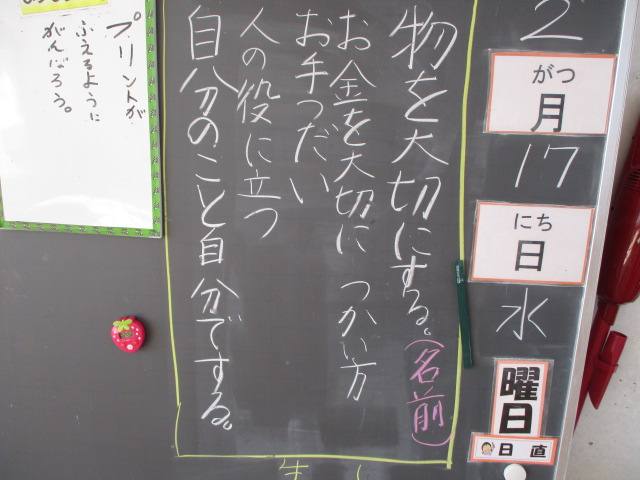 2
がつ
月
17
にち
日
水
曜日
日直
物を大切にする。(名前)
お金を大切に つかい方
お手つだい
人の役に立つ
自分のこと自分でする。
プリントが
ふえるように
がんばろう。